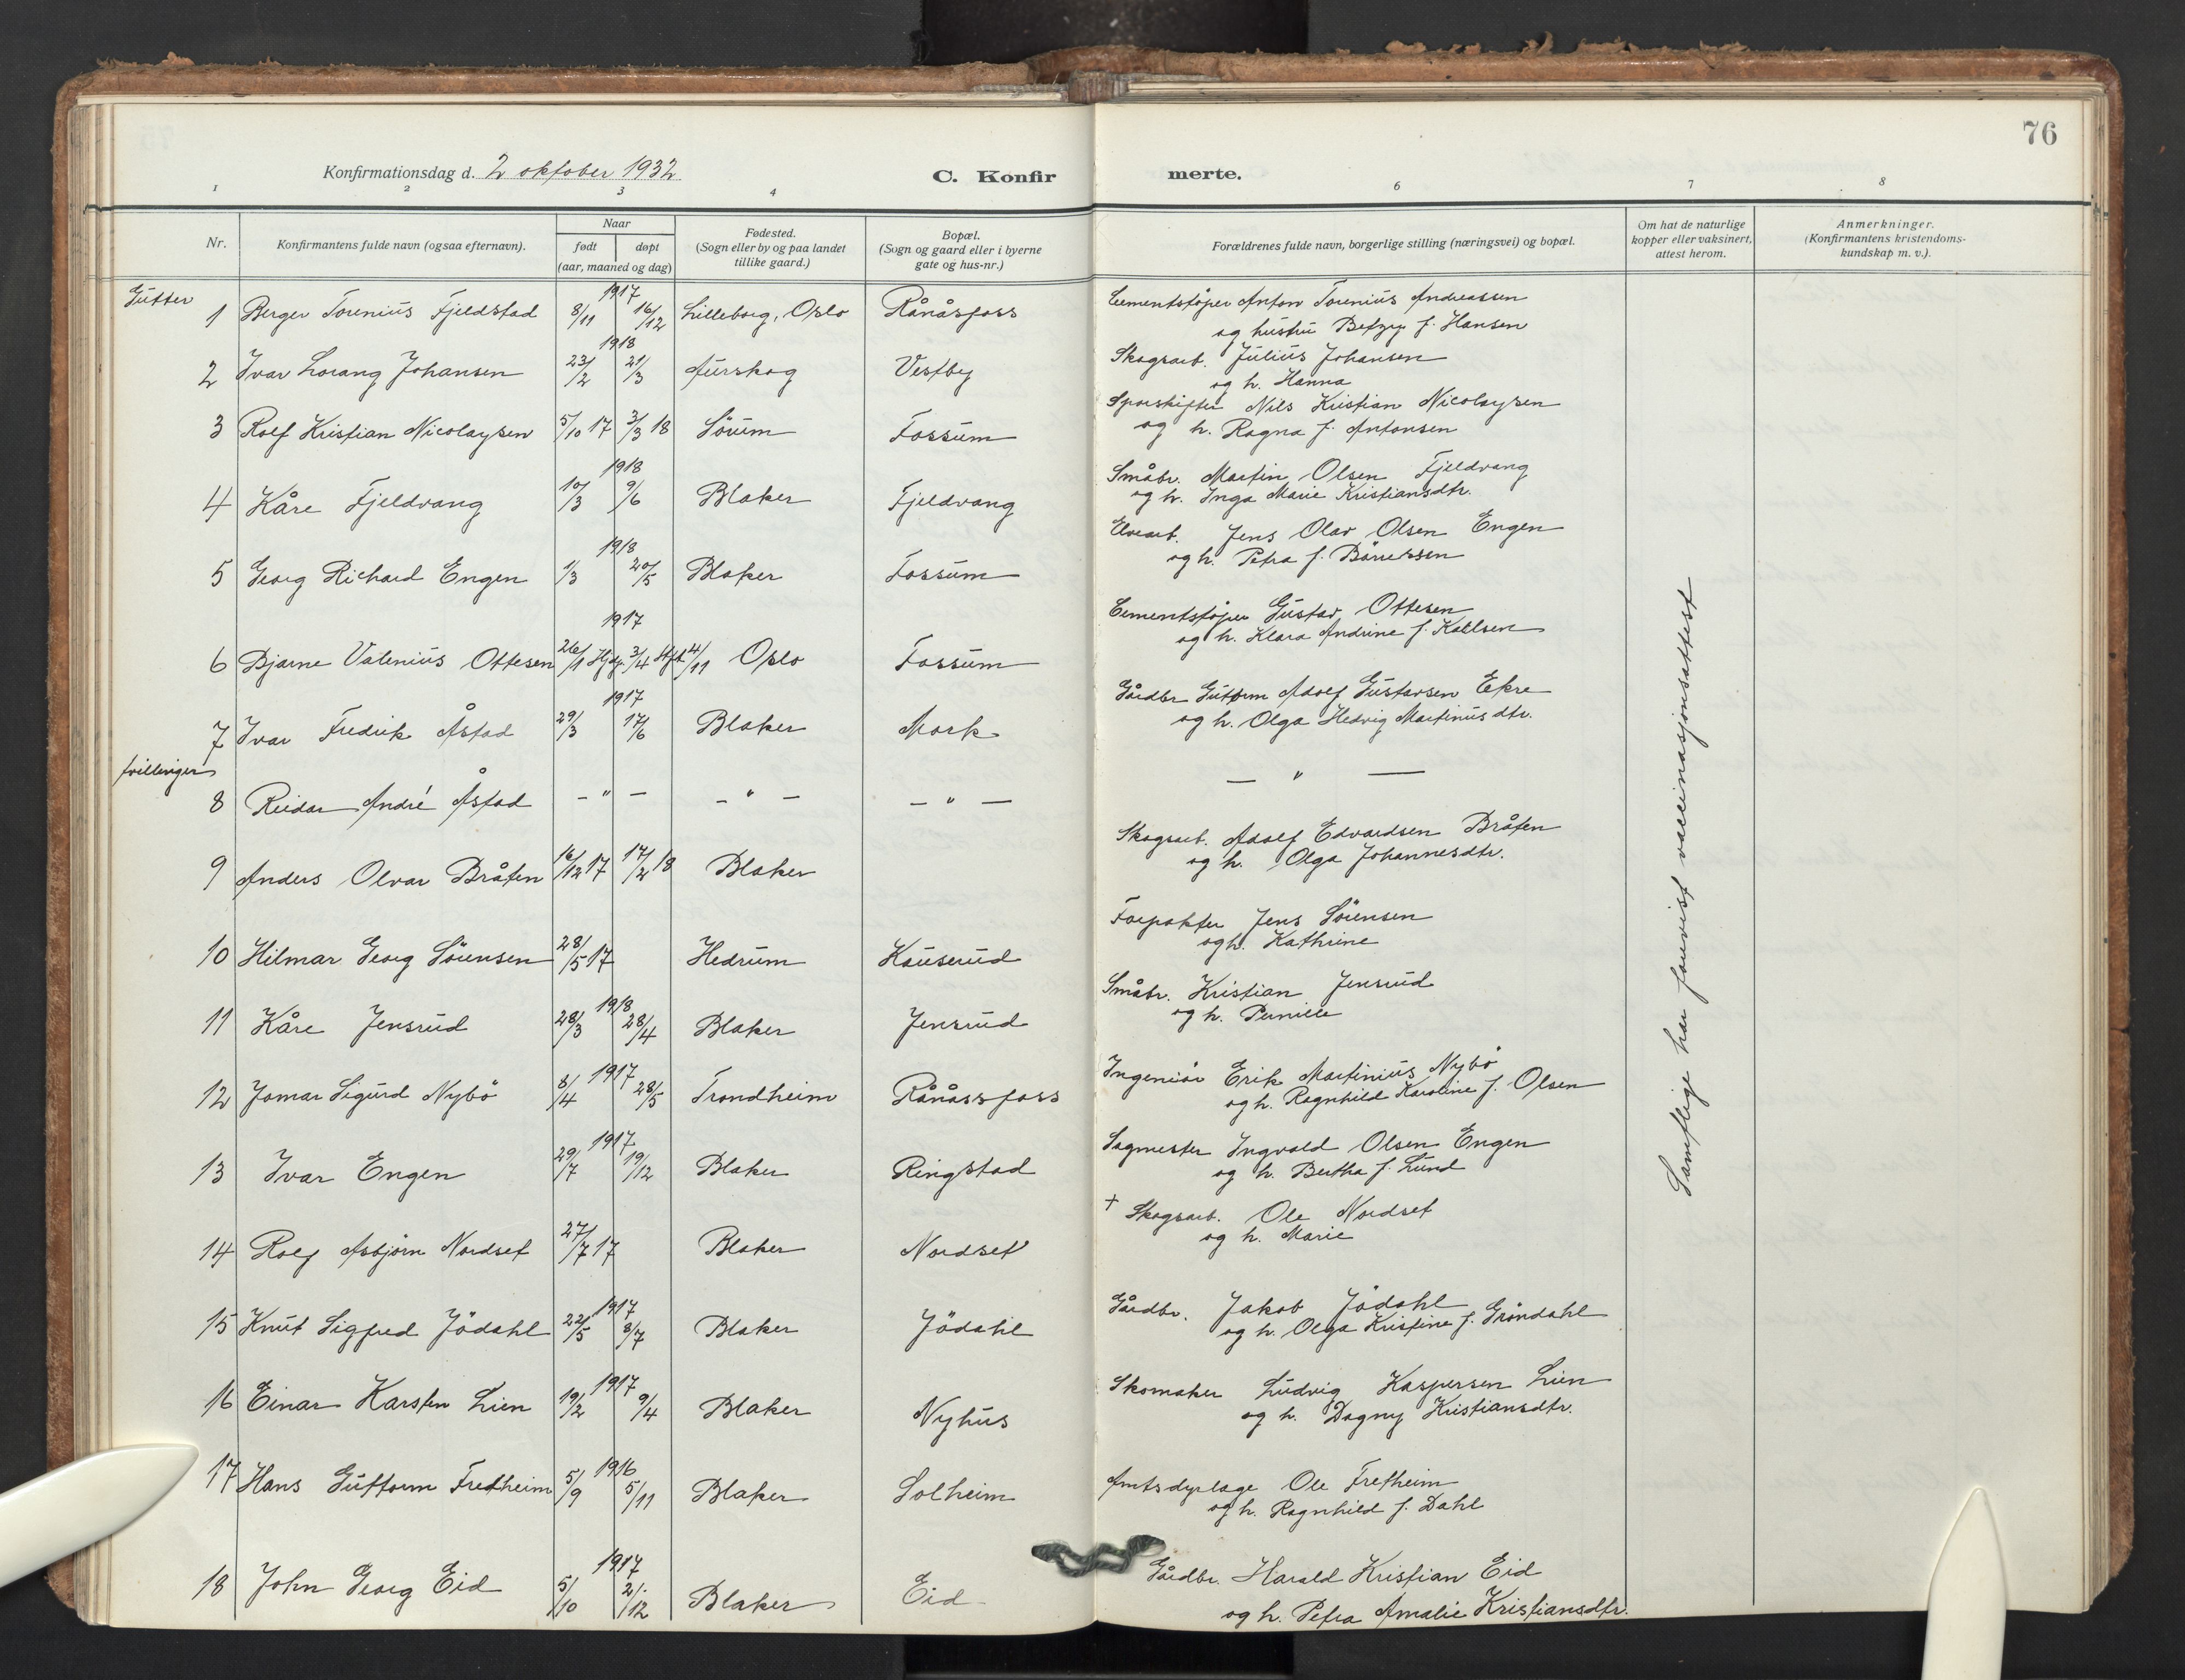 76
Konfirmationsdag d. 2 oktober 1932
C. Konfirmerte.
1 2 3 4 6 7 8
Nr.
Konfirmantens fulde navn (ogsaa efternavn).
Naar
født døpt
(aar, maaned og dag)
Fødested.
(Sogn eller by og paa landet
tillike gaard.)
Bopæl.
(Sogn og gaard eller i byerne
gate og hus-nr.)
Forældrenes fulde navn, borgerlige stilling (næringsvei) og bopæl.
Om hat de naturlige
kopper eller vaksinert,
attest herom.
Anmerkninger.
(Konfirmantens kristendoms-
kundskap m. v.).
Gutter
1 Berger Torenius Fjeldstad 8/11 1917 16/12 Lilleborg, Oslo Rånåsfoss Cementstøper Anton Torenius Andreassen
og hustru Betzy f. Hansen
2 Ivar Lorang Johansen 23/2 1918 21/3 Aurskog Vestby Skogsarb. Julius Johansen
og h. Hanna
3 Rolf Kristian Nicolaysen 5/10 17 3/3 18 Sörum Fossum Sporskifter Nils Kristian Nicolaysen
og h. Ragna f. Antonsen
4 Kåre Fjeldvang 10/3 1918 9/6 Blaker Fjeldvang Småbr. Martin Olsen Fjeldvang
og h. Inga Marie Kristiansdtr.
5 Georg Richard Engen 1/3 1918 20/5 Blaker Fossum Elvearb. Jens Olav Olsen Engen
og h. Petra f.
6 Bjarne Valenius Ottesen 26/1 1917 Hjdp. 3/4 Stfst 4/11 Oslo Fossum Cementstøper Gustav Ottesen
og h. Klara Andrine f. Karlsen
7 Ivar Fredrik Åstad 29/3 1917 17/6 Blaker Mork Gårdbr Guttorm Adolf Gustavsen Ekre
og h. Olga Hedvig Martinus dtr.
tvillinger
8 Reidar André Åstad - " - - " - - " - - " -
9 Anders Olvar Bråten 16/12 17 17/2 18 Blaker Skogsarb. Adolf Edvardsen Bråten
og h. Olga Johannesdtr.
10 Hilmar Georg Sörensen 28/5 17 Hedrum Kauserud Forpakter Jens Sörensen
og h. Kathrine
11 Kåre Jensrud 28/3 1918 28/4 Blaker Jensrud Småbr. Kristian Jensrud
og h. Pernille
12 Jomar Sigurd Nybö 8/4 1917 28/5 Trondheim Rånåssfoss Ingeniör Erik Martinius Nybö
og h. Ragnhild Karoline f. Olsen
13 Ivar Engen 29/7 1917 19/12 Blaker Ringstad Sagmester Ingvald Olsen Engen
og h. Bertha f. Lund
14 Rolf Asbjörn Nordset 27/7 17 Blaker Nordset + Skogsarb. Ole Nordset
og h. Marie
15 Knut Sigfred Jödahl 22/5 1917 8/7 Blaker Jödahl Gårdbr. Jakob Jödahl
og h. Olga Kristine f. Gröndahl
16 Einar Karsten Lien 19/2 1917 9/4 Blaker Nyhus Skomaker Ludvig Kaspersen Lien
og h. Dagny Kristiansdtr.
17 Hans Guttorm Fretheim 5/9 1916 5/11 Blaker Solheim Amtsdyrlæge Ole Fretheim
og h. Ragnhild f. Dahl
18 John Georg Eid 5/10 1917 2/12 Blaker Eid Gårdbr. Harald Kristian Eid
og h. Petra Amalie Kristiansdtr.
Samtlige har forevist vaccinasjonsattest